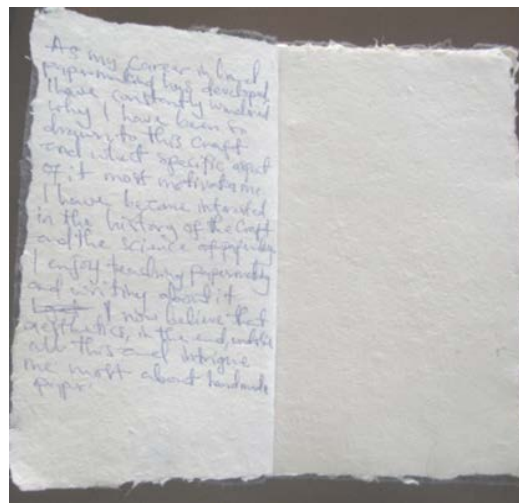 As my career in hand
papermaking has developed
I have constantly wondered
why I have been so
drawn to this craft
and what specific aspect
of it most motivates me.
I have become interested
in the history of the craft
and the science of papermaking
I enjoy teaching papermaking
and writing about it.
I now believe that
aesthetics, in the end, underlie
all this and intrigue
me most about handmade
paper.